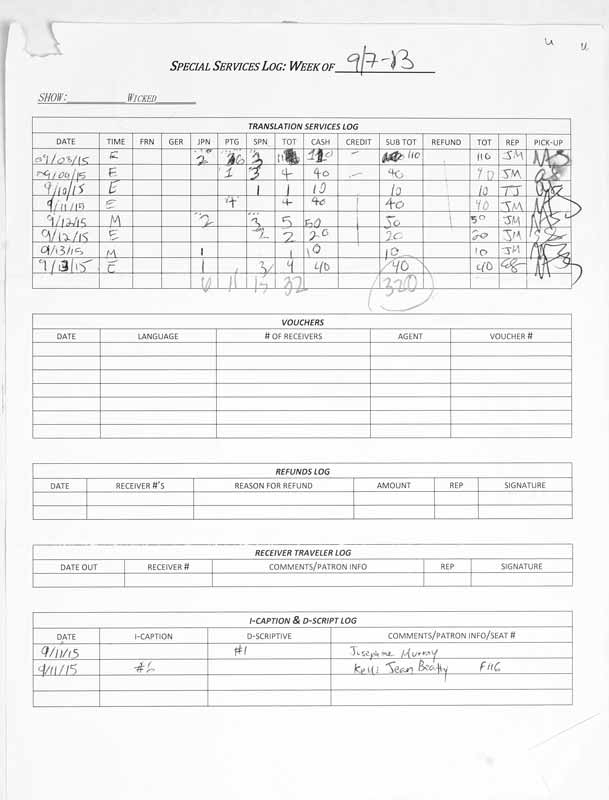 u u
SPECIAL SERVICES LOG: WEEK OF 9/7-13
SHOW: WICKED
TRANSLATION SERVICES LOG
DATE TIME FRN GER JPN PTG SPN TOT CASH CREDIT SUB TOT REFUND TOT REP PICK-UP
E 2 3 110 110 JM
E 1 3 4 40 — 40 40 JM
9/10/15 E 1 1 10 10 10 TJ
9/11/15 E 4 4 40 40 40 JM
9/12/15 M 2 3 5 50 50 50 JM
9/12/15 E 2 2 20 20 20 JM
9/13/15 M 1 1 10 10 10 JM
9/13/15 E 1 3 4 40 40 40
6 11 15 32 320
VOUCHERS
DATE LANGUAGE # OF RECEIVERS AGENT VOUCHER #
REFUNDS LOG
DATE RECEIVER #'S REASON FOR REFUND AMOUNT REP SIGNATURE
RECEIVER TRAVELER LOG
DATE OUT RECEIVER # COMMENTS/PATRON INFO REP SIGNATURE
I-CAPTION & D-SCRIPT LOG
DATE I-CAPTION D-SCRIPTIVE COMMENTS/PATRON INFO/SEAT #
9/11/15 #1 Josephine Murray
9/11/15 Kelli Jean Beatty F116